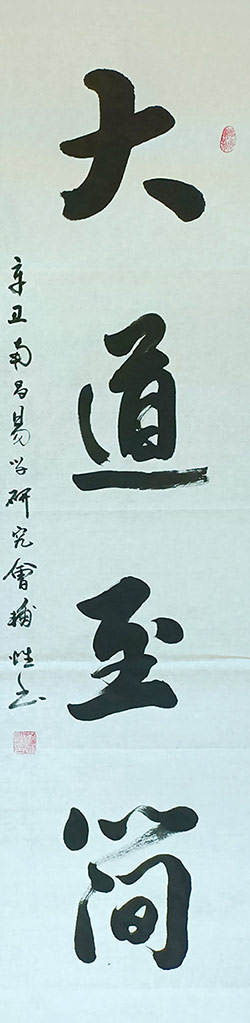 大道至简
辛丑南昌易学研究會 性书